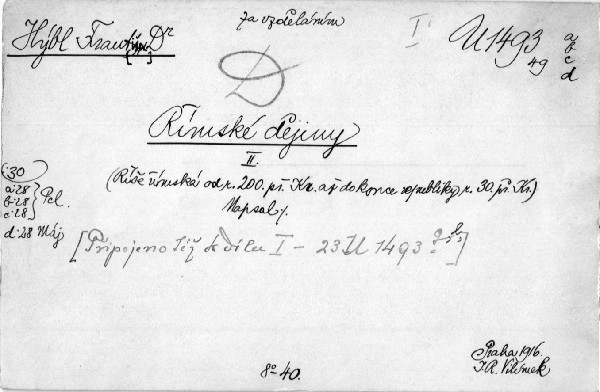 Za vzděláním
I
U 1493
49
a
b
c
d
Hýbl František Dr
D
Římské dějiny
II.
(Říše římská od r. 200. př. Kr. až do konce republiky r. 30. př. Kr.)
Napsal /.
:30
a:28
b:28
c:28
d:28 Máj
[Připojeno též k dílu I - 23 U 1493
Praha 1916.
J. R. Vilímek
8º 40.